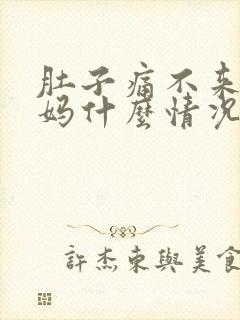 肚子痛不来
妈什麼情况
許杰東與美食